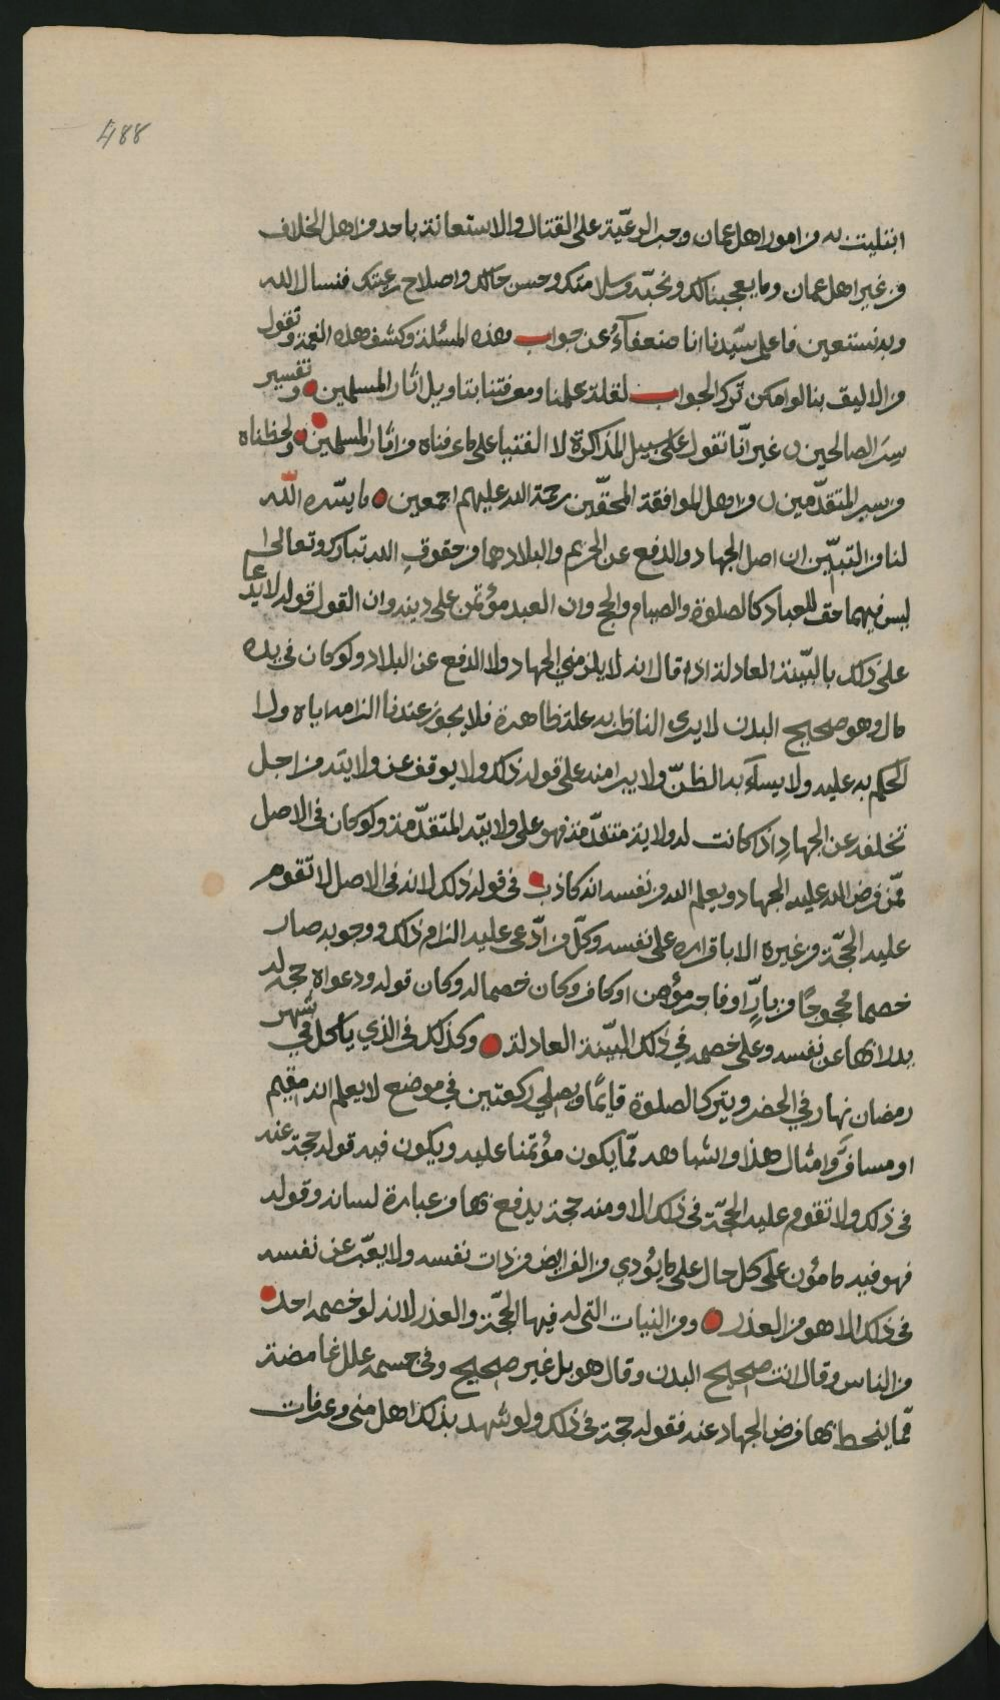 488
ابتليت به من امور اهل عمان وجبر الرعيّة على القتال والاستعانة باحد من اهل الخلاف
من غير اهل عمان وما يعجبنا لك ونحبّه وسلامتك وحسن حالك واصلاح رعيتك فنسال الله
وبه نستعين فاعلم سيّدنا انا ضعفآءُ عن جواب هذه المسئلة وكشف هذه الغمة ونقول
والاليق بنا لو امكن ترك الجواب لقلة علمنا ومعرفتنا بتاويل اثار المسلمين وتفسير
سِيَر الصالحين غير انّا نقول على سبيل المذاكرة لا الفتيا على ما عرفناه من اثار المسلمين ولحظناه
من سير المتقدّمين من اهل الموافقة المحقّين رحمة الله عليهم اجمعين ما يسّره اللّه
لنا من التبيّين ان اصل الجهاد والدفع عن الحريم والبلاد هما من حقوقِ الله تبارك وتعالى
ليس فيهما حق للعباد كالصلوة والصيام والحج وان العبد مؤتمن على دينه وان القول قوله لا يدعا
على ذلك بالبيّنة العادلة اذا قال انه لا يلزمني الجهاد ولا الدفع عن البلاد ولو كان في يده
مال وهو صحيح البدن لا يدرى الناظر به علة ظاهرة فلا يجوز عندنا الزامه اياه ولا
الحكم به عليه ولا يسآء به الظنّ ولا يبرا منه على قوله ذلك ولا يوقف عن ولايته من اجل
تخلفه عن الجهادِ اذا كانت له ولاية متقدّمة فهو على ولايته المتقدّمة ولو كان في الاصل
ممّن فرض الله عليه الجهاد ويعلم الله من نفسه انه كاذب في قوله ذلك لانه في الاصل لا تقوم
عليه الحجّة من غيره الا باقراره على نفسه وكلّ من ادّعى عليه الزام ذلك ووجوبه صار
خصما محجوجًا من بارٍّ او فاجر مؤمن او كافر وكان خصما له وكان قوله ودعواه حجة له
يدرا بها عن نفسه وعلى خصمه في ذلك البيّنة العادلة وكذلك في الذي ياكل في شهر
رمضان نهار في الحضر ويترك الصلوة قايمًا ويصلي ركعتين في موضع لا يعلم انه مقيم
او مسافر وامثال هذا واشباهه ممّا يكون مؤتمنا عليه ويكون فيه قوله حجة عنه
في ذلك ولا تقوم عليه الحجّة في ذلك الا ومنه حجة يدفع بها من عبارة لسانه وقوله
فهو فيه مامون على كل حال على ما يُؤدي من الفرايض من ذات نفسه ولا يعبّر عن نفسه
في ذلك الا هو من العذر ومن النيات التى له فيها الحجّة والعذر لانه لو خصمه احد
من الناس وقال انت صحيح البدن وقال هو بل غير صحيح وفي جسمه علل غامضة
ممّا ينحط بها فرض الجهاد عنه فقوله حجة في ذلك ولو شهد بذلك اهل منى وعرفات